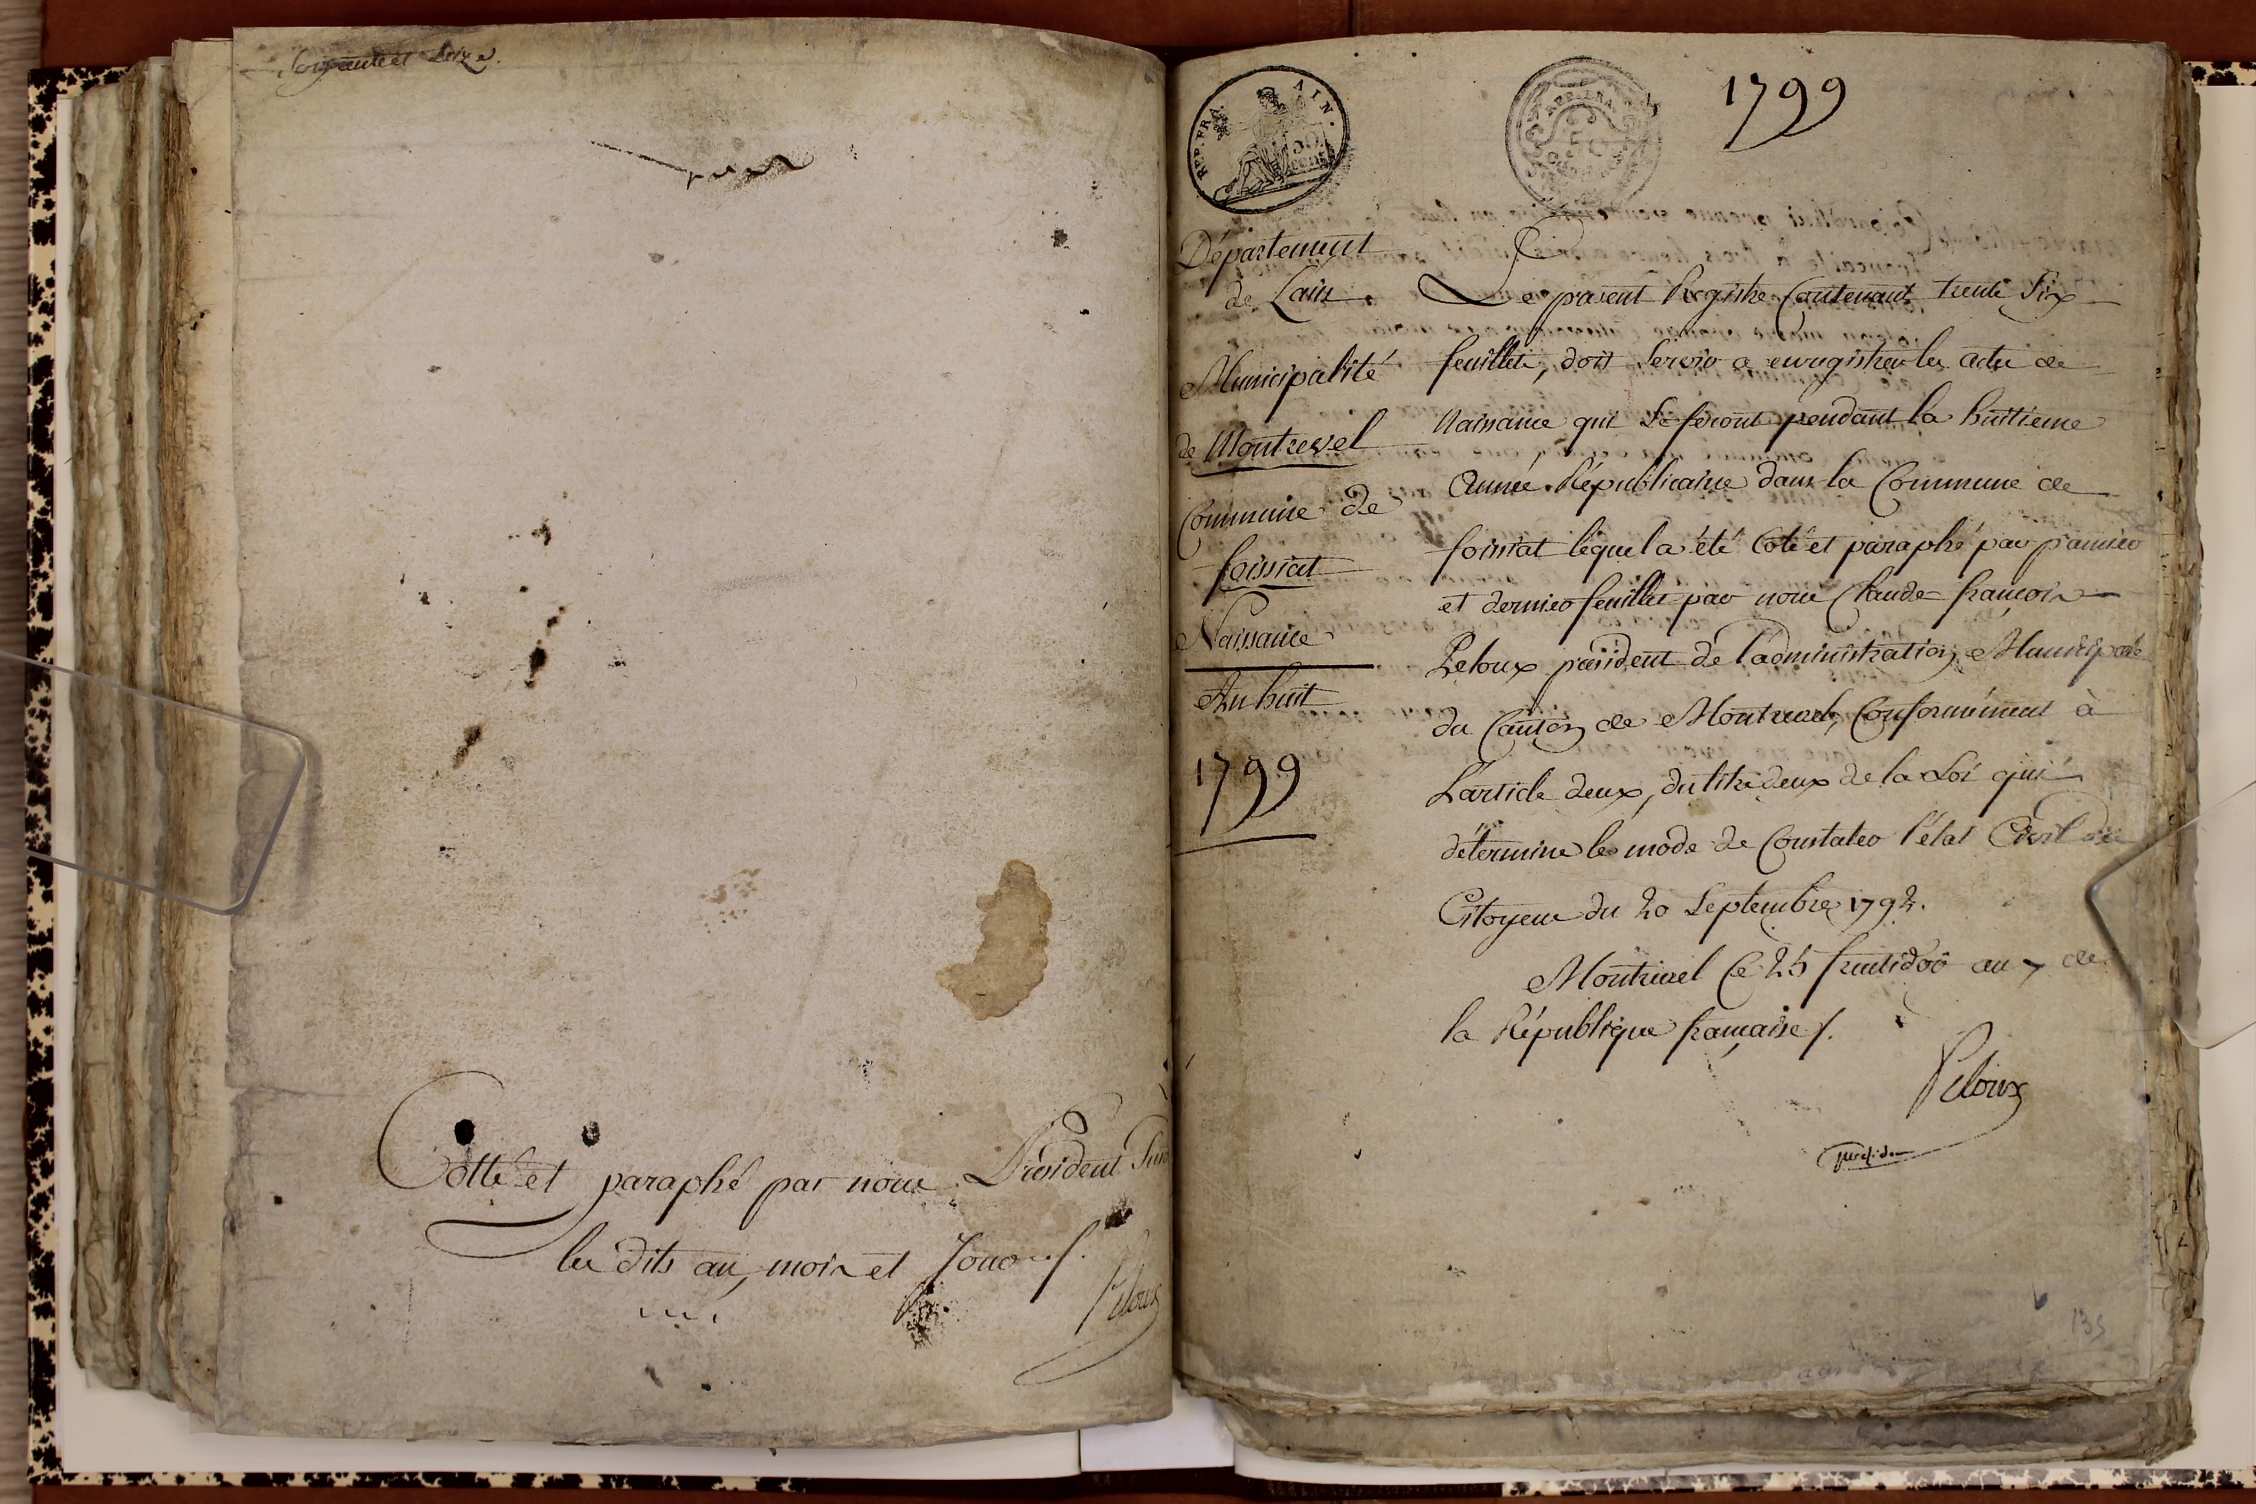 Soixante et seize
Cotté et paraphé par nous Président
les dits an, mois et Jour
Peloux
REP. FRA. AIN.
50 cent
REP. FRA.
1799
Département
de Lain
Municipalité
de Montrevel
Commune de
foissiat
Naissance
An huit
1799
Le présent Registre Contenant trente Six
feuillets, doit Servir a enregistrer les actes de
Naissance qui Se feront pendant la huitieme
Année Républicaine dans la Commune de
foissiat lequel a été Coté et paraphé par premier
et dernier feuillet par nous Claude françois
Peloux président de l'administration Municipale
du Canton de Montrevel, Conformément à
L'article deux, du titre deux de la Loi qui
détermine le mode de Constater l'état Civil des
Citoyens du 20 Septembre 1792.
Montrevel Ce 25 fructidor an 7 de
la République française /.
Peloux
président
135